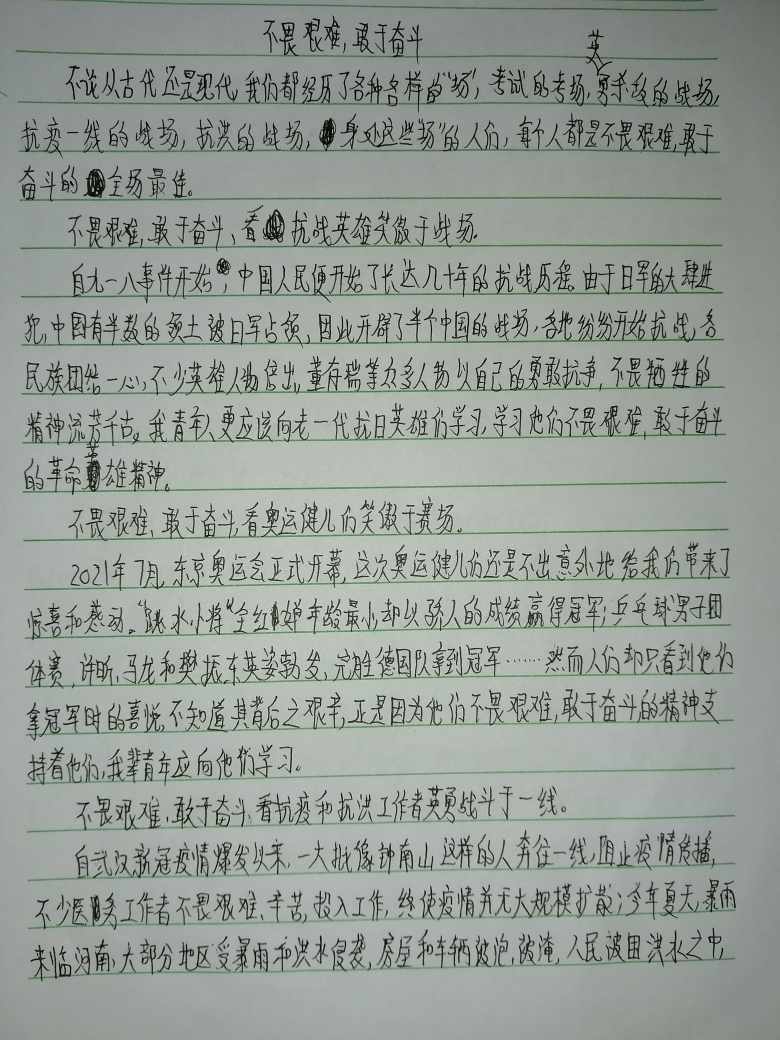 不畏艰难,敢于奋斗
不论从古代还是现代,我们都经历了各种各样的“场”,考试的考场,英勇杀敌的战场,
抗疫一线的战场,抗洪的战场,身处这些“场”的人们,每个人都是不畏艰难,敢于
奋斗的全场最佳。
不畏艰难,敢于奋斗,看抗战英雄笑傲于战场.
自九一八事件开始,中国人民便开始了长达几十年的抗战历程.由于日军的大肆进
犯,中国有半数的领土被日军占领,因此开辟了半个中国的战场,各地纷纷开始抗战,各
民族团结一心,不少英雄人物倍出,董存瑞等众多人物以自己的勇敢抗争,不畏牺牲的
精神流芳千古。我青年人更应该向老一代抗日英雄们学习,学习他们不畏艰难,敢于奋斗
的革命英雄精神。
不畏艰难、敢于奋斗,看奥运健儿们笑傲于赛场。
2021年7月,东京奥运会正式开幕,这次奥运健儿们还是不出意外地给我们带来了
惊喜和感动。“跳水小将”全红婵年龄最小却以骄人的成绩赢得冠军;乒乓球男子团
体赛,许昕,马龙和樊振东英姿勃发,完胜德国队拿到冠军……然而人们却只看到他们
拿冠军时的喜悦,不知道其背后之艰辛,正是因为他们不畏艰难,敢于奋斗的精神支
持着他们,我辈青年应向他们学习。
不畏艰难,敢于奋斗,看抗疫和抗洪工作者英勇战斗于一线。
自武汉新冠疫情爆发以来,一大批像钟南山这样的人奔往一线,阻止疫情传播,
不少医务工作者不畏艰难、辛苦,投入工作,终使疫情并无大规模扩散;今年夏天,暴雨
来临河南,大部分地区受暴雨和洪水侵袭,房屋和车辆被泡,被淹,人民被困洪水之中,